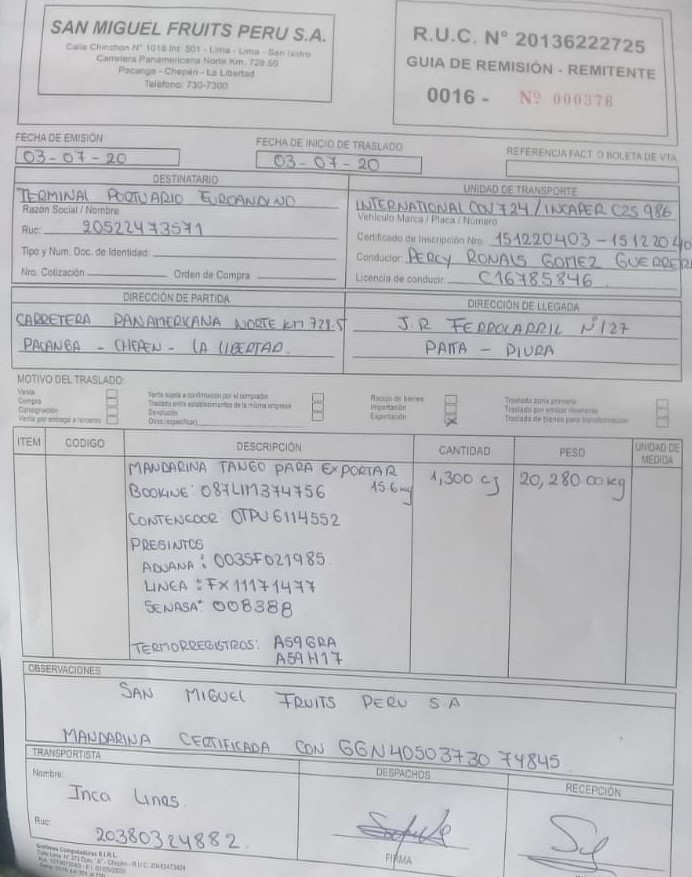 SAN MIGUEL FRUITS PERU S.A.
Calle Chinchon N° 1018 Int. 501 - Lima - Lima - San Isidro
Carretera Panamericana Norte Km. 729.50
Pacanga - Chepén - La Libertad
Teléfono: 730-7300
R.U.C. N° 20136222725
GUIA DE REMISIÓN - REMITENTE
0016 - Nº 000376
FECHA DE EMISIÓN
03-07-20
FECHA DE INICIO DE TRASLADO
03-07-20
REFERENCIA FACT. O BOLETA DE VTA.
DESTINATARIO
TERMINAL PORTUARIO EUROANDINO
Razón Social / Nombre
Ruc: 20522473571
Tipo y Num. Doc. de Identidad:
Nro. Cotización Orden de Compra
UNIDAD DE TRANSPORTE
INTERNATIONAL COV 724 / INCAPER C2S 986
Vehículo Marca / Placa / Número
Certificado de Inscripción Nro. 151220403 - 15122040
Conductor: PERCY RONALS GOMEZ GUERRER
Licencia de conducir: C16785846
DIRECCIÓN DE PARTIDA
CARRETERA PANAMERICANA NORTE KM 729.5
PACANGA - CHEPEN - LA LIBERTAD.
DIRECCIÓN DE LLEGADA
J.R FERROCARRIL N°127
PAITA - PIURA
MOTIVO DEL TRASLADO:
Venta
Compra
Consignación
Venta por entrega a terceros
Venta sujeta a confirmación por el comprador
Traslado entre establecimientos de la misma empresa
Devolución
Otros (especificar)
Recojo de bienes
Importación
Exportación X
Traslado zona primaria
Traslado por emisor itinerante
Traslado de bienes para transformación
ITEM CODIGO DESCRIPCIÓN CANTIDAD PESO UNIDAD DE MEDIDA
MANDARINA TANGO PARA EXPORTAR 1,300 cj 20,280.00 kg
BOOKING: 087LIM374756 15.6 kg
CONTENEDOR OTPU 6114552
PRESINTOS
ADUANA: 0035F021985
LINEA: FX11171477
SENASA: 008388
TERMORREGISTROS: A59GRA
A59H17
OBSERVACIONES
SAN MIGUEL FRUITS PERU S.A
MANDARINA CERTIFICADA CON GGN 4050373074845
TRANSPORTISTA
Nombre: Inca Lines.
Ruc: 20380324882
DESPACHOS
FIRMA
RECEPCIÓN